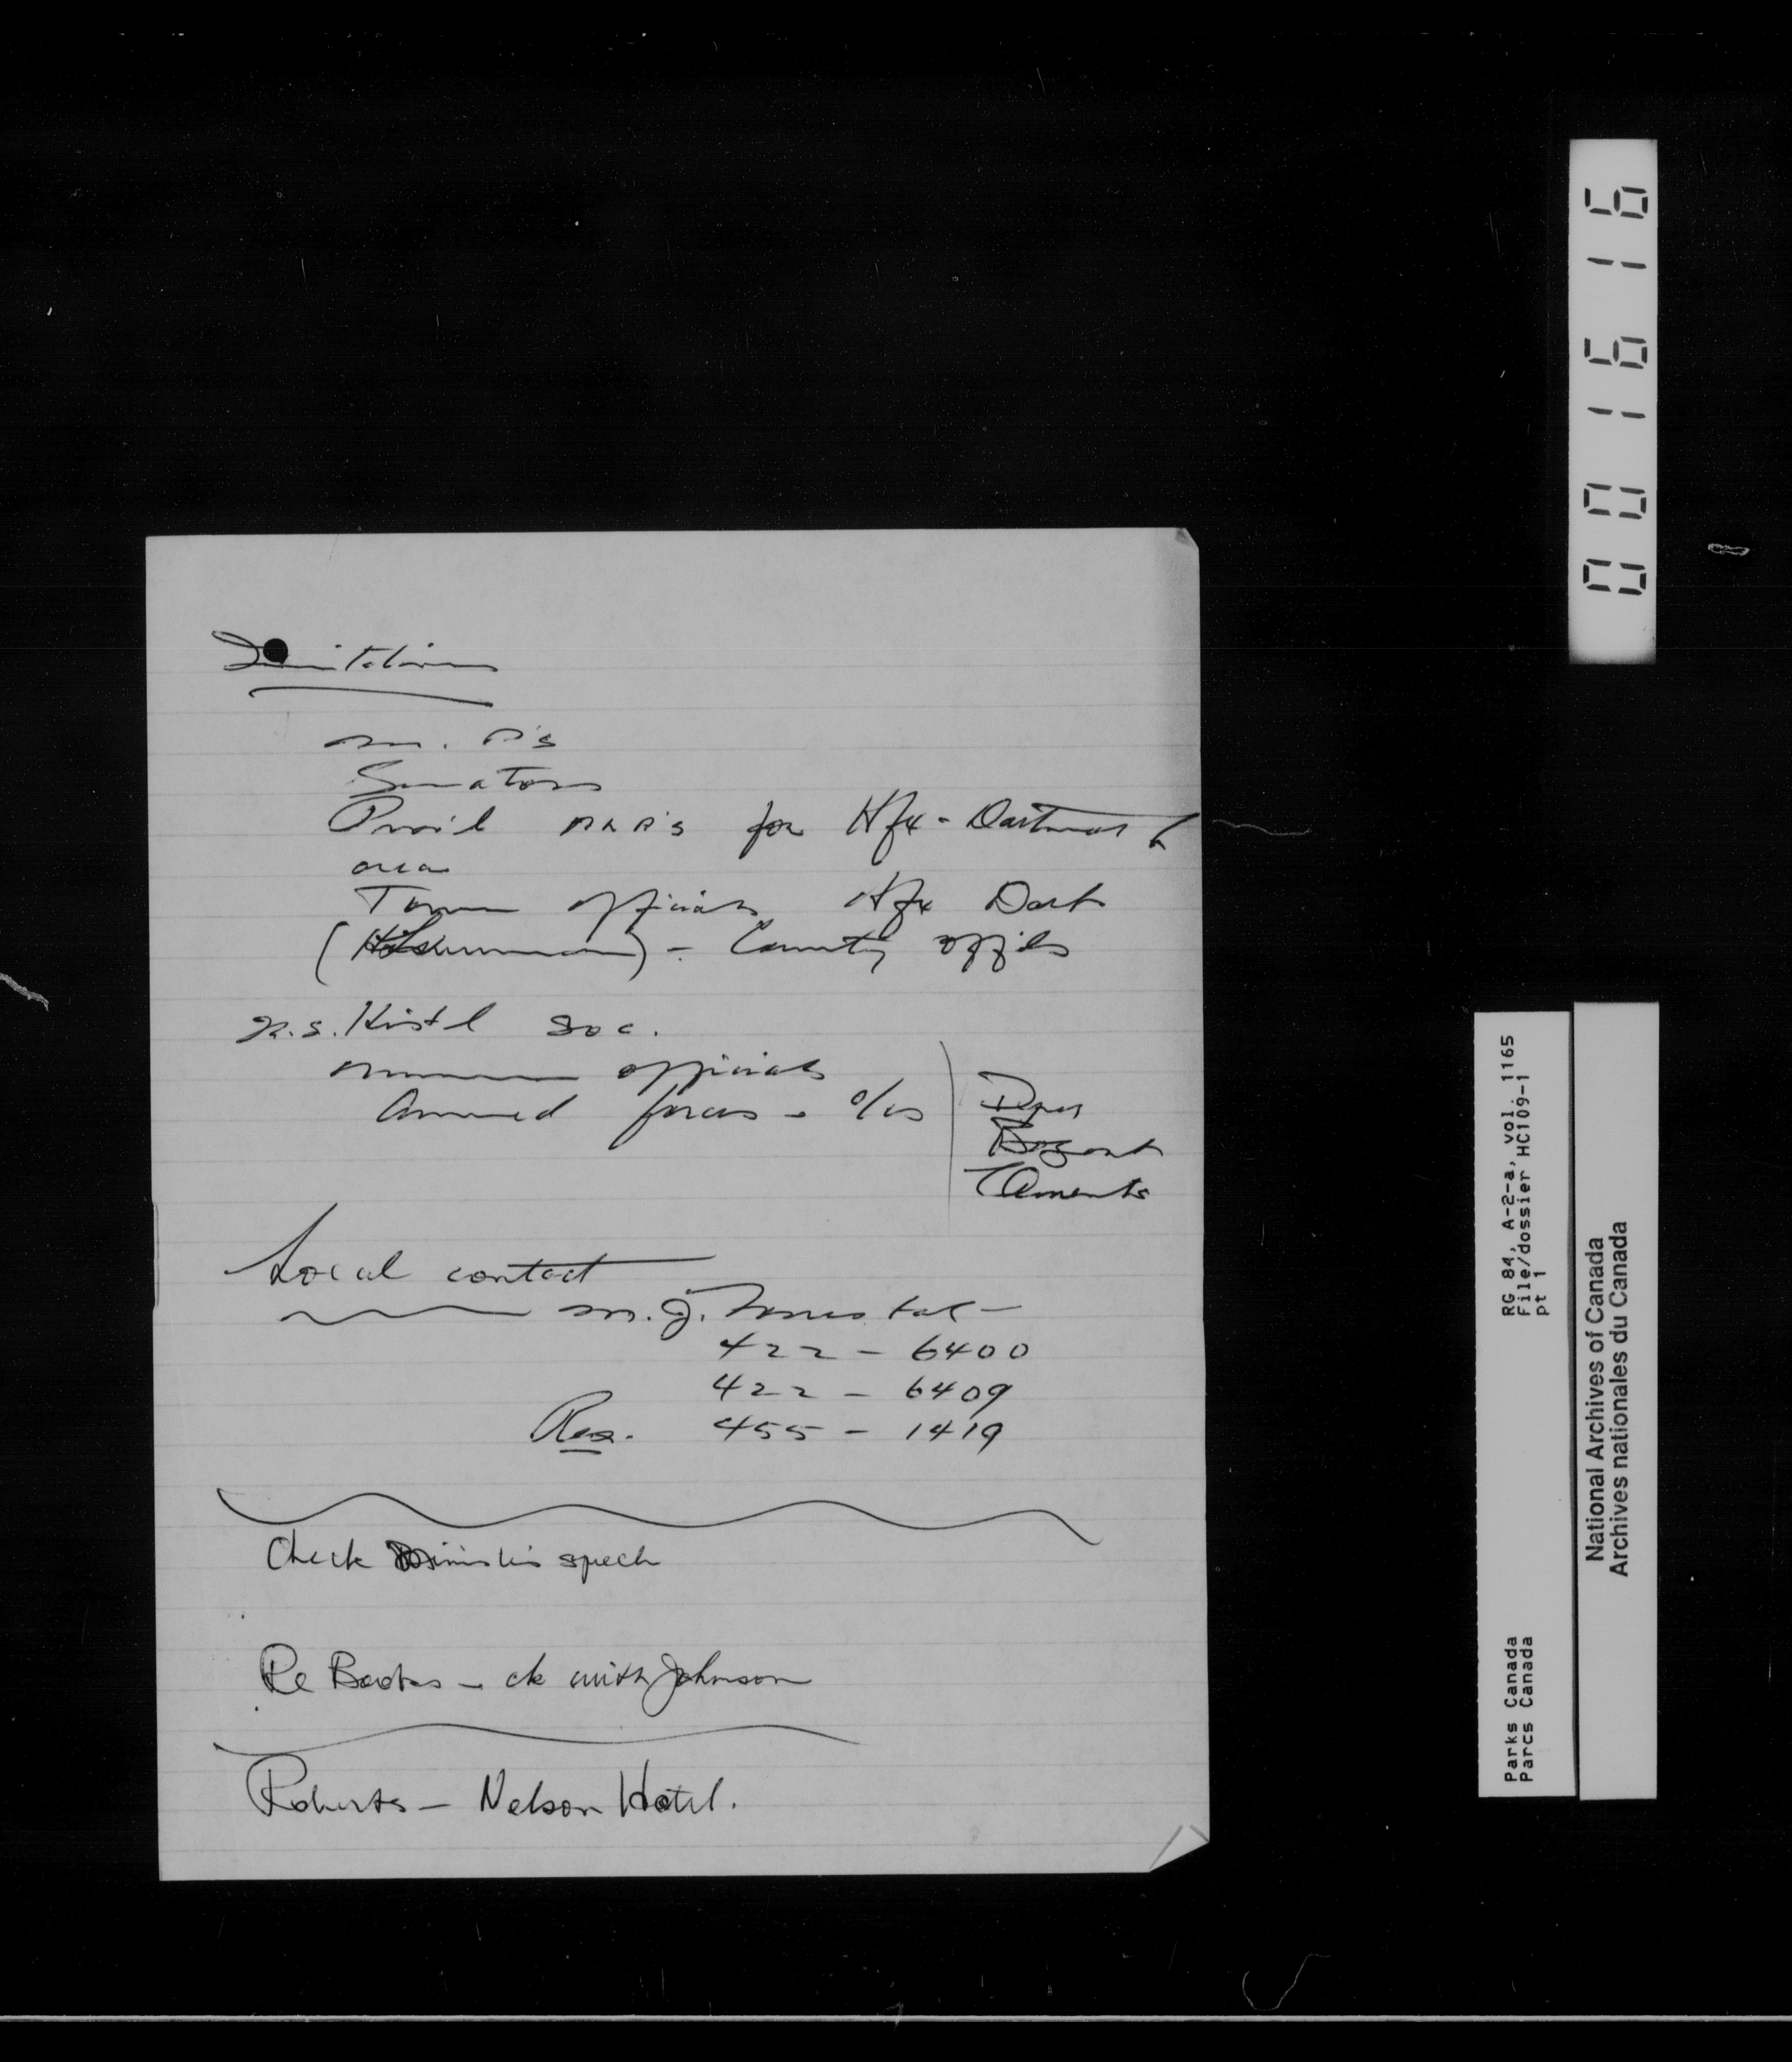 Invitations
M.P's
Senators
Prov'l MLA's for Hfx - Dartmouth
area
Town officials Hfx Dart
- County offils
N.S. Hist'l Soc.
museum officials
Armed forces - o/cs
Clements
Local contact
M.J.
422 - 6400
422 - 6409
Res. 455 - 1419
Check Ministers speech
Re Books - ck with Johnson
Roberts - Nelson Hotel.
000 1616
RG 84, A-2-a, vol. 1165
File/dossier HC109-1
pt 1
Parks Canada
Parcs Canada
National Archives of Canada
Archives nationales du Canada